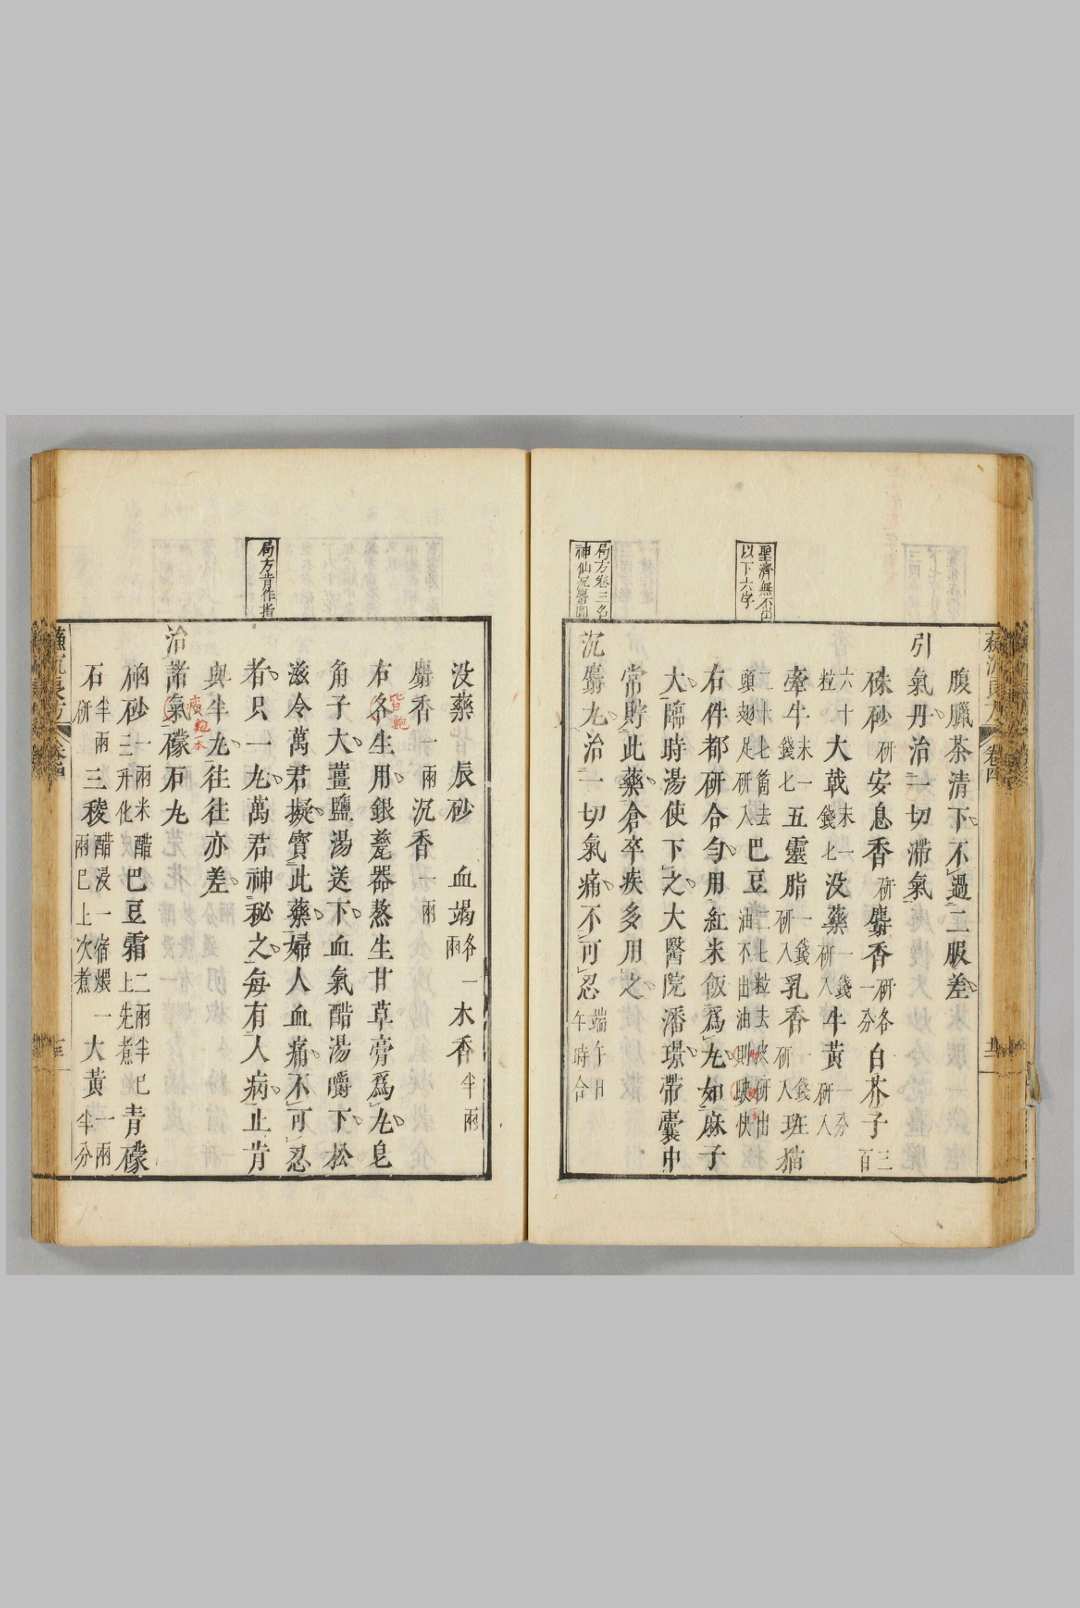 蘇沈良方
卷四
聖濟無不出
以下六字
局方卷三名
神仙沉麝圓
腹臘茶清下不過二服差
引氣丹治一切滯氣
硃砂研安息香研麝香研各一分白芥子三百
六十粒大戟末一錢匕没藥一錢研入牛黃一分研入
牽牛末一錢匕五靈脂一錢研入乳香一錢研入班猫
二十七箇去頭翅足研入巴豆二七粒去皮研出油不出油則
右件都研合勻用紅米飯爲丸如麻子
大臨時湯使下之大醫院潘璟帶囊中
常貯此藥倉卒疾多用之
沉麝丸治一切氣痛不可忍端午日午時合
局方肯作指
没藥 辰砂 血竭各一兩木香半兩
麝香一兩沉香一兩
右各生用銀甆器熬生甘草膏爲丸皂
角子大薑鹽湯送下血氣醋湯嚼下松
滋令萬君擬寳此藥婦人血痛不可忍
者只一丸萬君神秘之每有人病止肯
與半丸往往亦差
治諸氣礞石丸
硇砂一兩米醋三升化巴豆霜二兩半巳上先煮青礞
石半兩研三稜醋浸一宿煨一兩巳上次煮大黃一兩半分
蘇沈良方
卷四